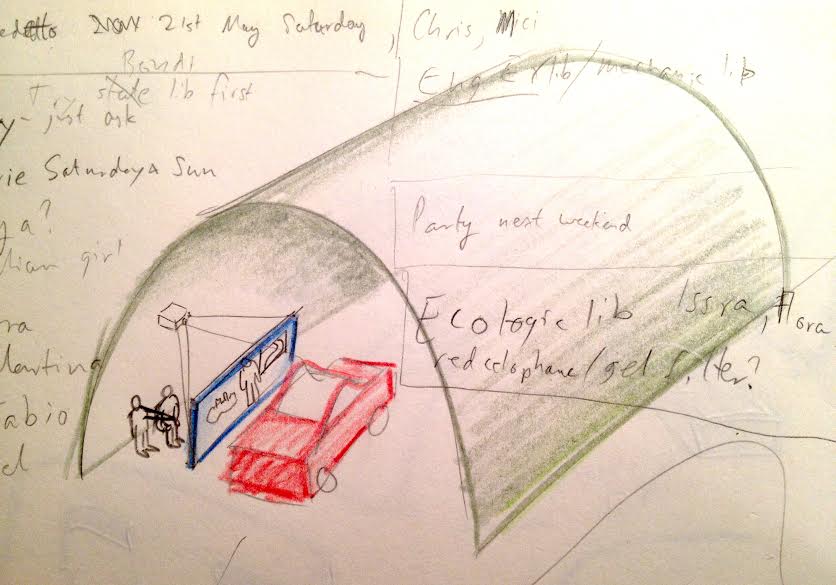 21st May Saturday,
Bondi
state lib first
- just ask
Saturday & Sun
a?
girl
Martina
Fabio
Chris, Mici
Eng lib / mechanic lib
Party next weekend
Ecologic lib Issra, Flora
red celophane / gel filter?